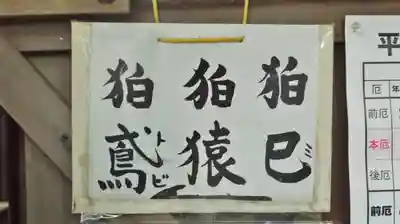 狛巳
ミ
狛猿
狛鳶
トビ
平
厄
年
前厄
本厄
後厄
前厄